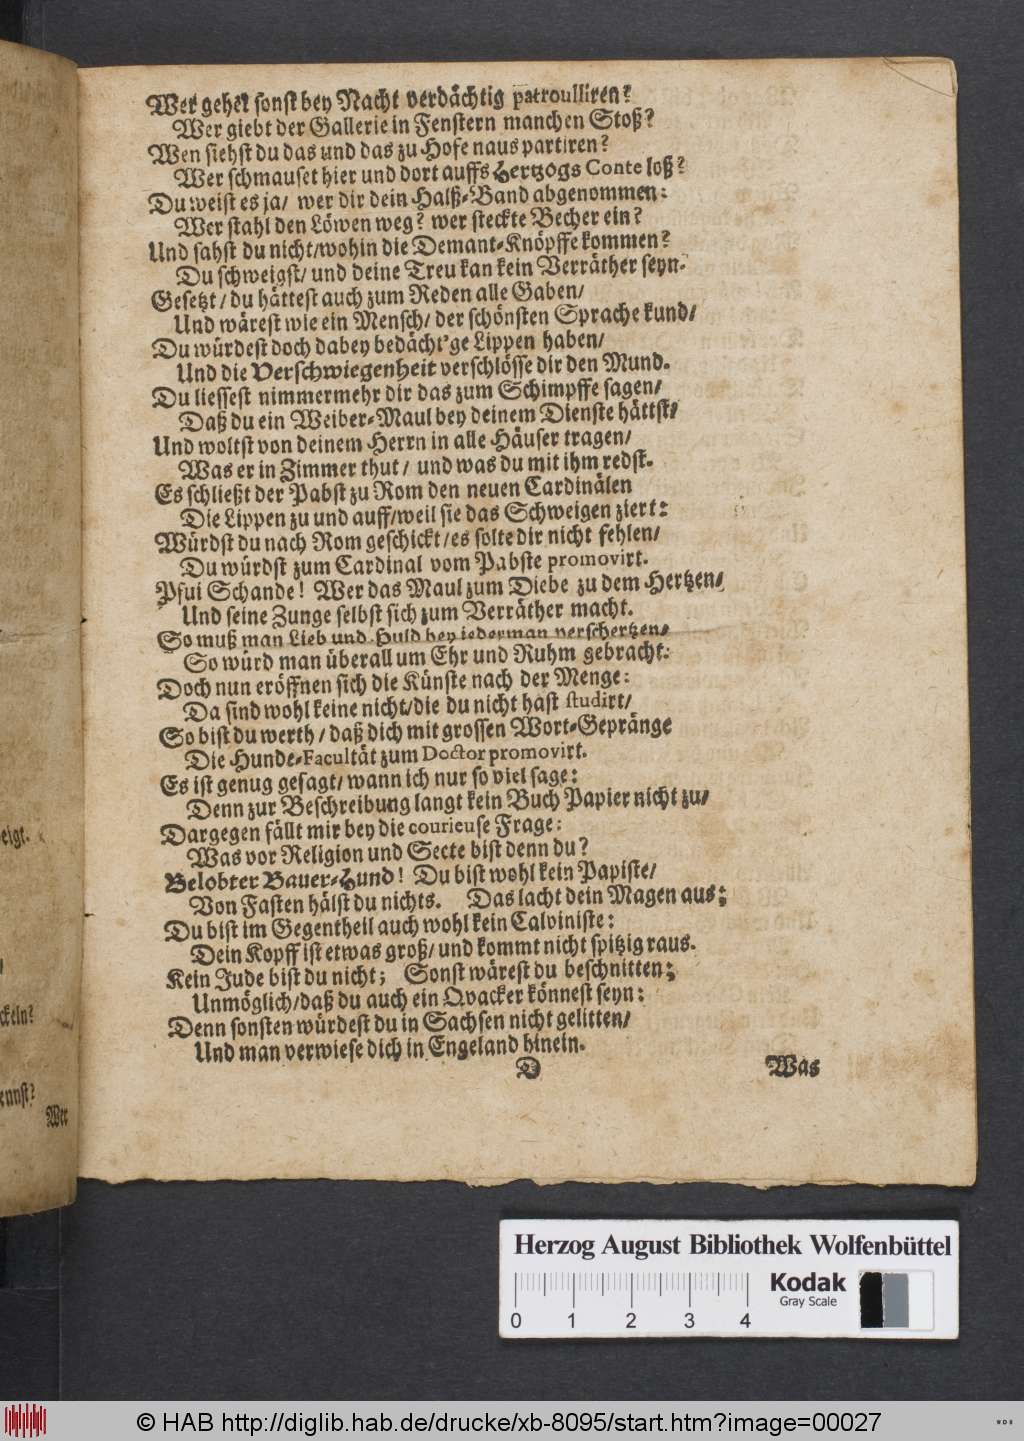 Wer gehet sonst bey Nacht verdächtig patroulliren?
Wer giebt der Gallerie in Fenstern manchen Stoß?
Wen siehst du das und das zu Hofe naus partiren?
Wer schmauset hier und dort auffs Hertzogs Conte loß?
Du weist es ja/ wer dir dein Halß-Band abgenommen:
Wer stahl den Löwen weg? wer steckte Becher ein?
Und sahst du nicht/wohin die Demant-Knöpffe kommen?
Du schweigst/ und deine Treu kan kein Verräther seyn.
Gesetzt/ du hättest auch zum Reden alle Gaben/
Und wärest wie ein Mensch/ der schönsten Sprache kund/
Du würdest doch dabey bedächt'ge Lippen haben/
Und die Verschwiegenheit verschlösse dir den Mund.
Du liessest nimmermehr dir das zum Schimpffe sagen/
Daß du ein Weiber-Maul bey deinem Dienste hättst/
Und woltst von deinem Herrn in alle Häuser tragen/
Was er in Zimmer thut/ und was du mit ihm redst.
Es schließt der Pabst zu Rom den neuen Cardinälen
Die Lippen zu und auff/weil sie das Schweigen ziert:
Würdst du nach Rom geschickt/es solte dir nicht fehlen/
Du würdst zum Cardinal vom Pabste promovirt.
Pfui Schande! Wer das Maul zum Diebe zu dem Hertzen/
Und seine Zunge selbst sich zum Verräther macht.
So muß man Lieb und Huld bey jederman verschertzen/
So würd man überall um Ehr und Ruhm gebracht:
Doch nun eröffnen sich die Künste nach der Menge:
Da sind wohl keine nicht/die du nicht hast studirt/
So bist du werth/ daß dich mit grossen Wort-Gepränge
Die Hunde-Facultät zum Doctor promovirt.
Es ist genug gesagt/ wann ich nur so viel sage:
Denn zur Beschreibung langt kein Buch Papier nicht zu/
Dargegen fällt mir bey die courieuse Frage:
Was vor Religion und Secte bist denn du?
Belobter Bauer-Hund! Du bist wohl kein Papiste/
Von Fasten hälst du nichts. Das lacht dein Magen aus:
Du bist im Gegentheil auch wohl kein Calviniste:
Dein Kopff ist etwas groß/ und kommt nicht spitzig raus.
Kein Jude bist du nicht; Sonst wärest du beschnitten:
Unmöglich/daß du auch ein Qvacker könnest seyn:
Denn sonsten würdest du in Sachsen nicht gelitten/
Und man verwiese dich in Engeland hinein.
D Was
eigt.
ckeln?
ennst?
Wer
Herzog August Bibliothek Wolfenbüttel
Kodak
Gray Scale
0 1 2 3 4
© HAB http://diglib.hab.de/drucke/xb-8095/start.htm?image=00027